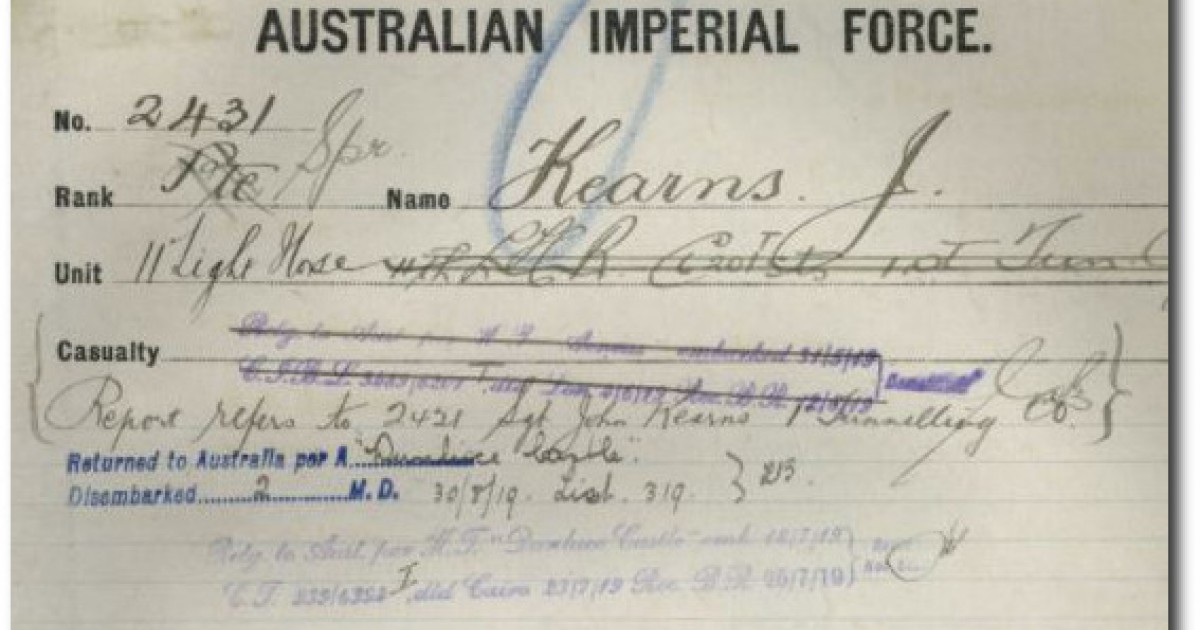 AUSTRALIAN IMPERIAL FORCE.
No. 2431
Rank Pte Spr. Name Kearns. J.
Unit 11 Light Horse 11th L.H.R. 1st Tun.
Casualty Rtg. to Aust. per H.T. embarked 31/5/19
Report refers to 2421 Sgt John Kearns 1 Tunnelling Co
Returned to Australia per A "Dunluce Castle".
Disembarked 2 M.D. 30/8/19. List. 319.
Rtg. to Aust. per H.T. "Dunluce Castle" emb
C.T. dtd Cairo 23/7/19 Rec. B.R. 25/7/19